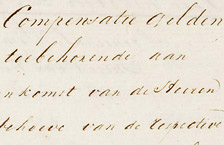 Compensatie Gelden
toebehorende aan
nkomst van de Heeren
behoeve van de